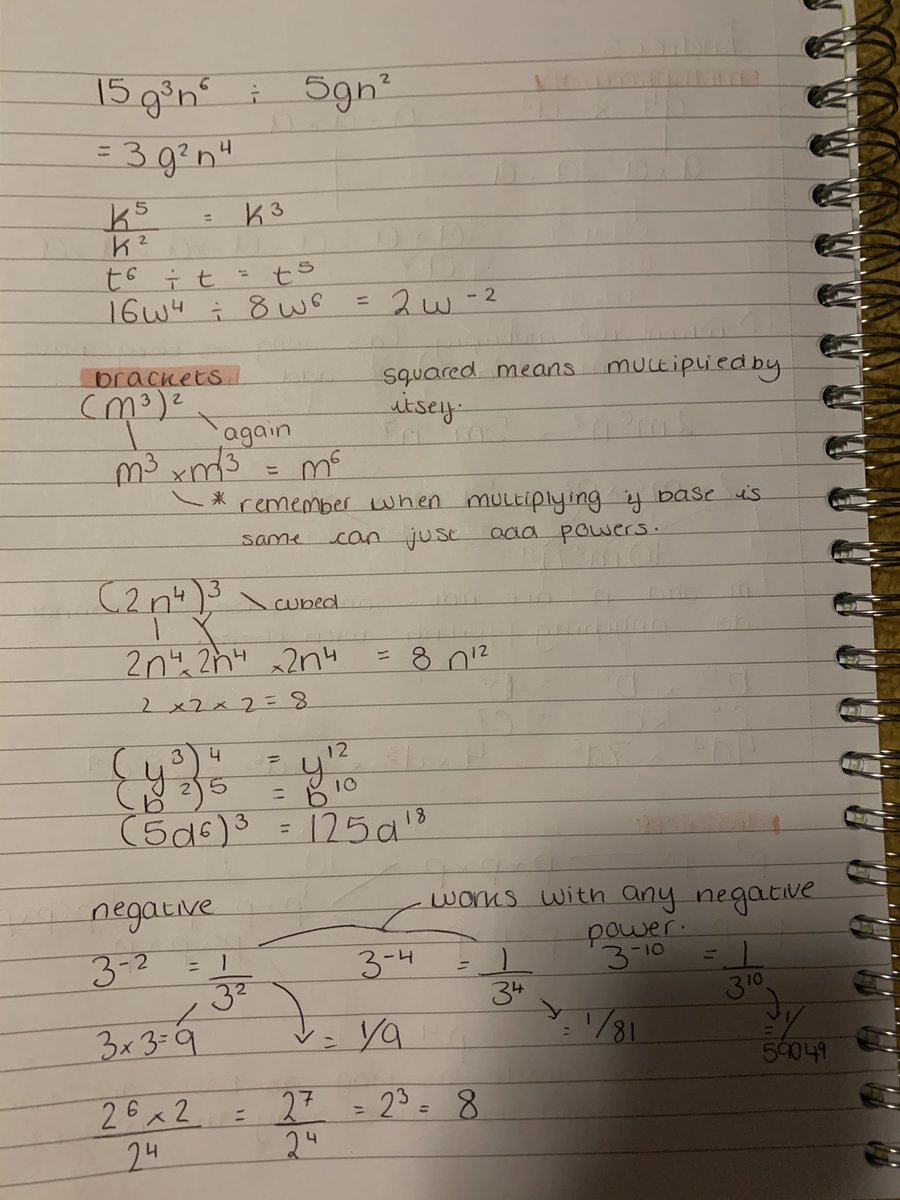 15g³n⁶ ÷ 5gn²
= 3g²n⁴
k⁵/k² = k³
t⁶ ÷ t = t⁵
16w⁴ ÷ 8w⁶ = 2w⁻²
brackets
squared means multiplied by
(m³)²
itself.
again
m³ × m³ = m⁶
* remember when multiplying if base is
same can just add powers.
(2n⁴)³ cubed
2n⁴ × 2n⁴ × 2n⁴ = 8n¹²
2 × 2 × 2 = 8
(y³)⁴ = y¹²
(b²)⁵ = b¹⁰
(5d⁶)³ = 125d¹⁸
negative
works with any negative
power.
3⁻² = 1/3² 3⁻⁴ = 1/3⁴ 3⁻¹⁰ = 1/3¹⁰
3 × 3 = 9 = 1/9 = 1/81 = 1/59049
2⁶ × 2/2⁴ = 2⁷/2⁴ = 2³ = 8